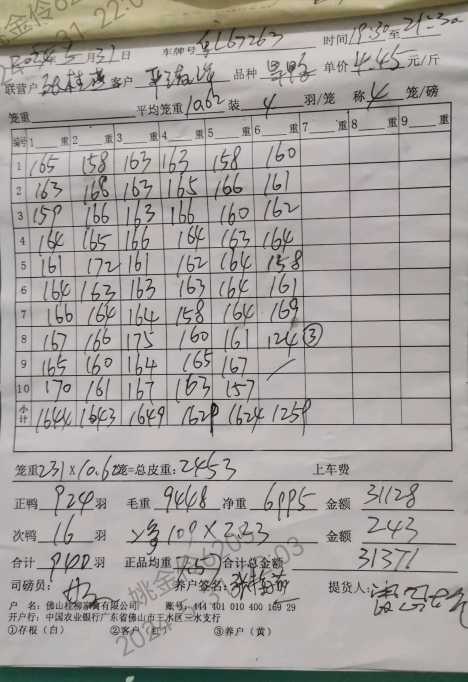 2024年5月31日 车牌号 粤L67263 时间19:30至21:30
联营户 客户 品种 单价4.45元/斤
笼重 平均笼重10.62 装 4 羽/笼 称 4 笼/磅
编号 1 重 2 重 3 重 4 重 5 重 6 重 7 重 8 重 9 重
1 165 158 163 163 158 160
2 163 168 163 165 166 161
3 159 166 163 166 160 162
4 164 165 166 164 163 164
5 161 172 161 162 164 158
6 164 163 163 163 164 161
7 166 164 164 158 164 169
8 167 166 175 160 161 124 ③
9 165 160 164 165 167
10 170 161 167 163 157
小计 1644 1643 1649 1629 1624 1259
笼重231×10.62笼=总皮重:2453 上车费
正鸭 924羽 毛重 9448 净重 6995 金额 31128
次鸭 16羽 金额 243
合计 940羽 正品均重 7.57 合计总金额 31371
司磅员: 养户签名: 提货人:
户 名:佛山桂柳家禽有限公司 账号:444 401 010 400 169 29
开户行:中国农业银行广东省佛山市三水区三水支行
①存根(白) ②客户(红) ③养户(黄)